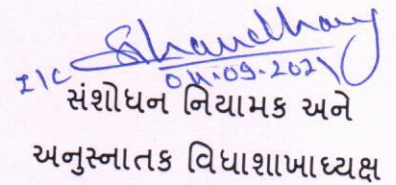 I/C Shaudhary
04.09.2021
સંશોધન નિયામક અને
અનુસ્નાતક વિધાશાખાધ્યક્ષ